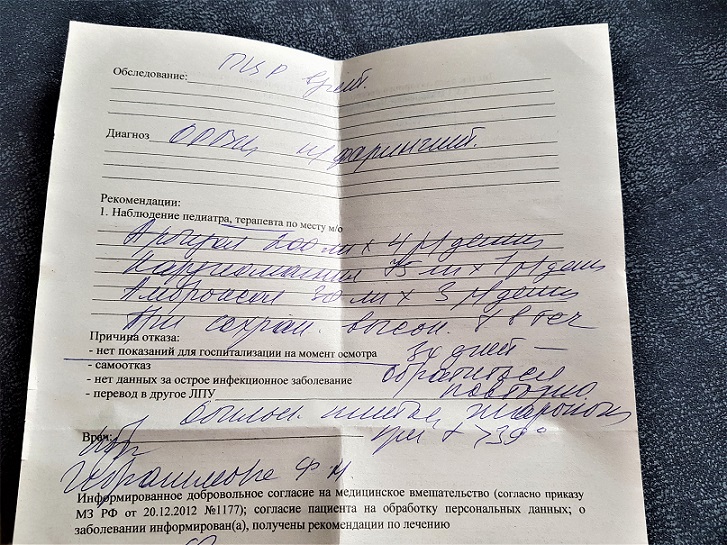 Обследование: ПЦР взят.
Диагноз ОРВИ, н/фарингит.
Рекомендации:
1. Наблюдение педиатра, терапевта по месту м/о
200 мг х 4 р/день
75 мг х 1 р/день
Амброксол 30 мг х 3 р/день
При сохран. высок. t в теч
Причина отказа:
- нет показаний для госпитализации на момент осмотра 3х дней —
- самоотказ
- нет данных за острое инфекционное заболевание обратиться
- перевод в другое ЛПУ повторно.
питье, жаропон
Врач: при t >39°
Информированное добровольное согласие на медицинское вмешательство (согласно приказу
МЗ РФ от 20.12.2012 №1177); согласие пациента на обработку персональных данных; о
заболевании информирован(а), получены рекомендации по лечению